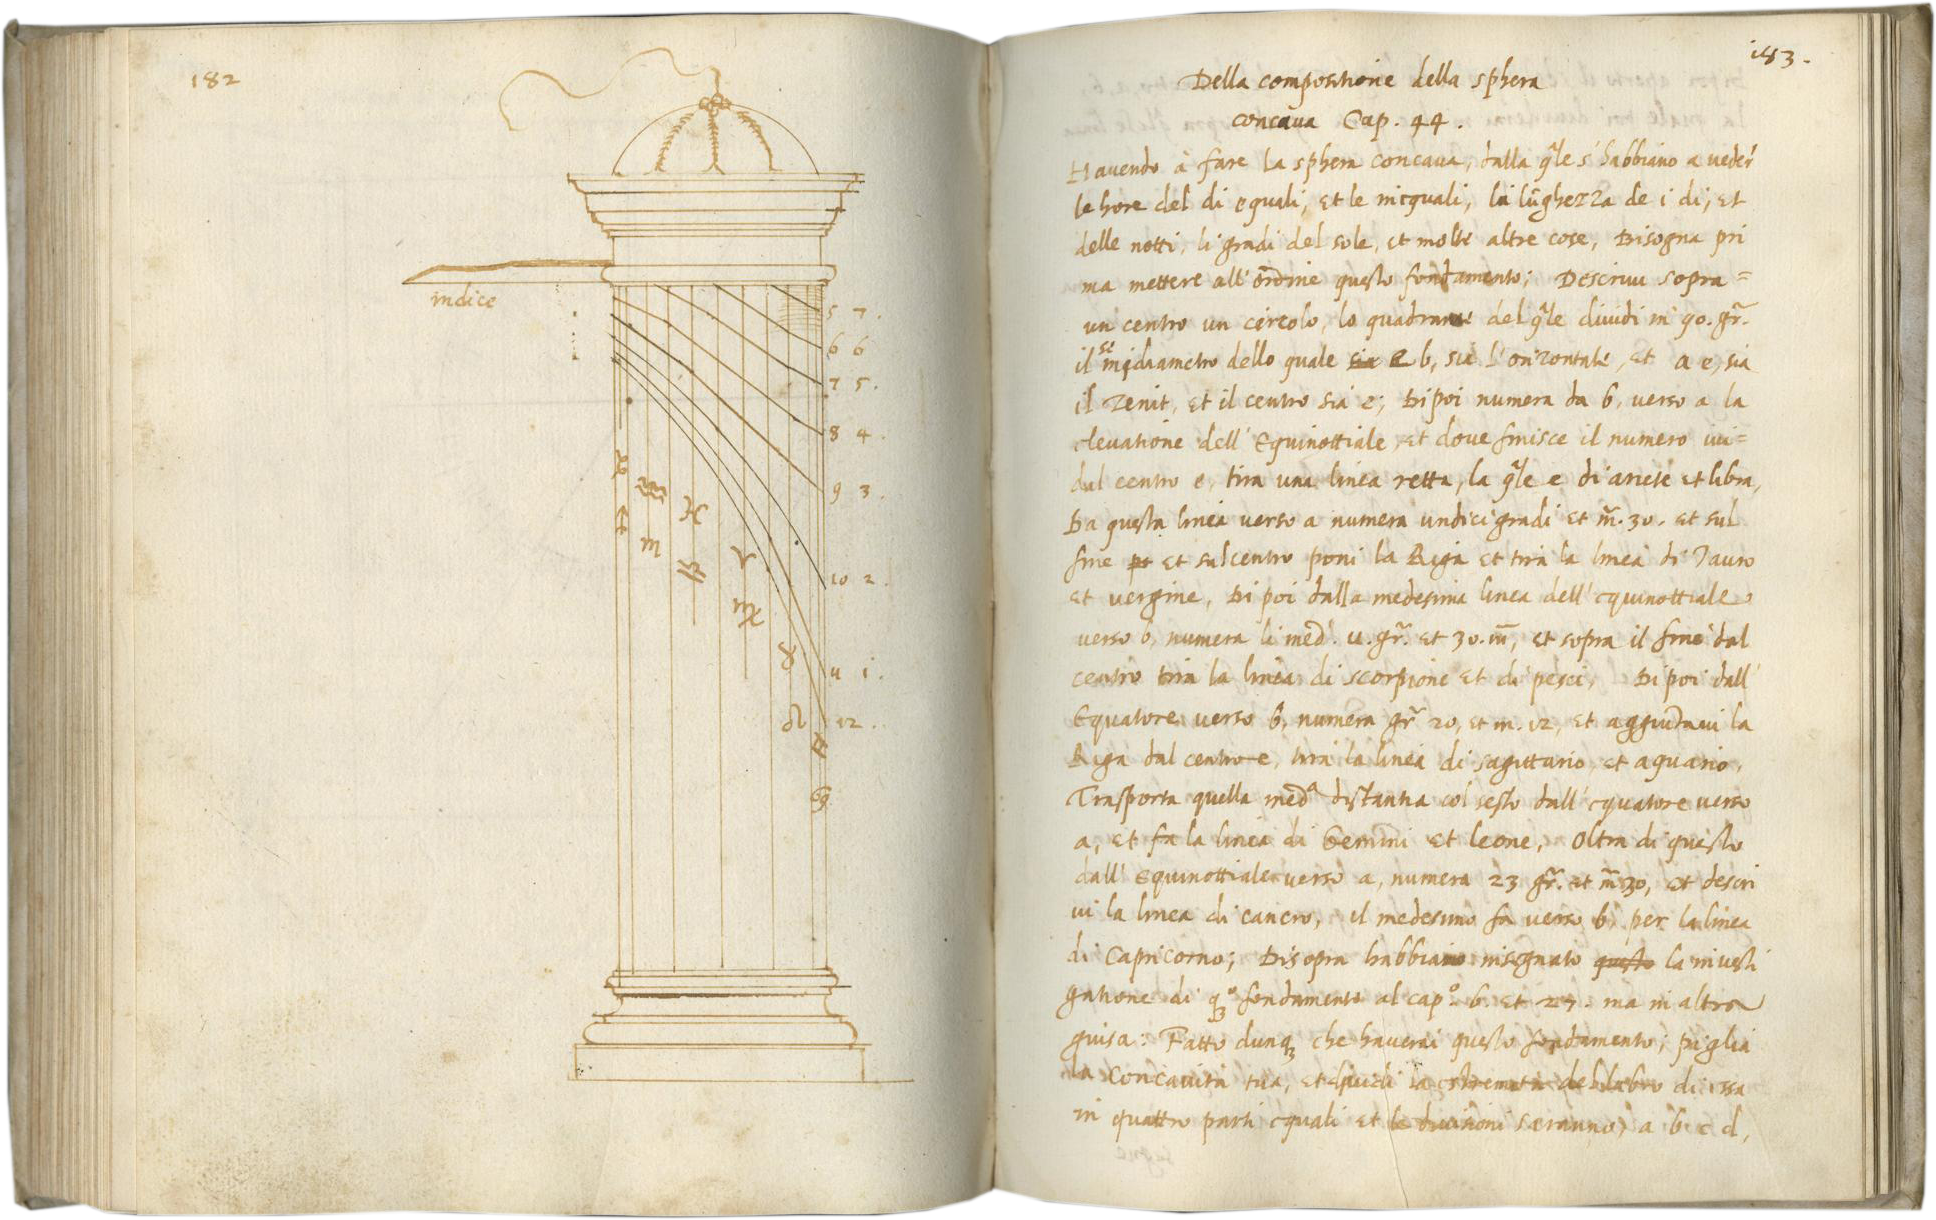 182
indice
5 7.
6 6
7 5.
8 4.
9 3.
10 2.
11 1.
12.
♑ ♒ ♓
♐ ♏ ♎
♈ ♍
♉ ♌
♊ ♋
183.
Della compositione della sphera
concava Cap. 44.
Havendo à fare la sphera concava, dalla q̃le s'habbiano a veder'
le hore del di equali, et le inequali, la lũghezza de i di, et
delle notti, li gradi del sole, et molte altre cose, Bisogna pri
ma mettere all'ordine questo fondamento; Descrivi sopra=
un centro un circolo, lo quadrante del q̃le dividi in 90. gr̃.
il semidiametro dello quale sia e b, sia l'orizontale, et a e, sia
il zenit, et il centro sia e; Dipoi numera da b, verso a la
elevatione dell'Equinottiale, et dove finisce il numero ivi=
dal centro e, tira una linea retta, la q̃le e di ariete et libra,
Da questa linea verso a numera undici gradi et m̃. 30. et sul
fine et sul centro poni la Riga et tira la linea di Tauro
et vergine, Di poi dalla medesima linea dell'equinottiale
verso b, numera li med. 11. gr̃. et 30. m̃, et sopra il fine dal
centro tira la linea di scorpione et di pesci, Di poi dall'
Equatore verso b, numera gr̃ 20, et m. 12, et aggiudavi la
Riga dal centro e, tira la linea di sagittario et aquario,
Trasporta quella medᵃ distantia col sesto dall'equatore verso
a, et fa la linea di Gemini et leone, Oltra di questo
dall'Equinottiale verso a, numera 23 gr̃. et m̃ 30, et descri
vi la linea di cancro, il medesimo fa verso b, per la linea
di Capricorno; Disopra habbiamo insegnato questo la investi
gatione di q̃sto fondamento al capº. 6. et 27. ma in altra
guisa: Fatto dunq̃ che haverai questo fondamento, piglia
la concavità tua, et dividi la estremita del labro di essa
in quattro parti equali et le divisioni seranno, a b c d,